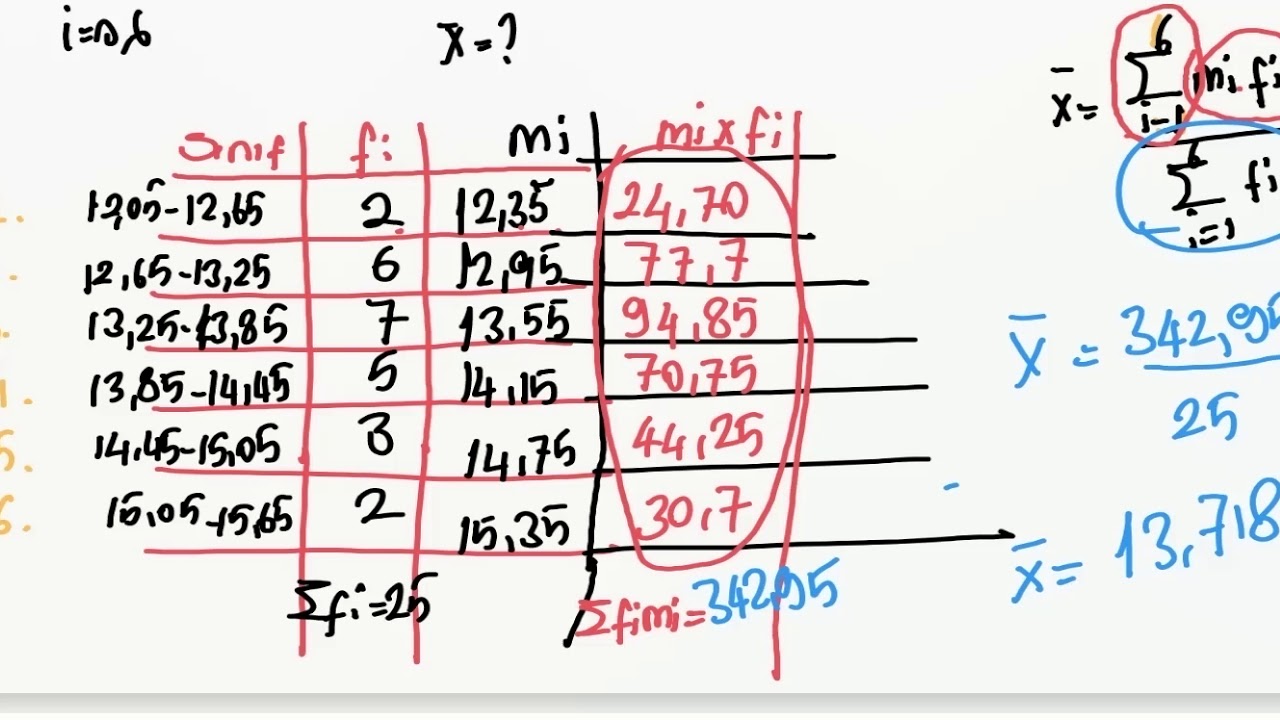 i=0,6
x̄=?
x̄= 6 Σ i-1 mi.fi
6 Σ i=1 fi
Sınıf fi mi mixfi
12,05-12,65 2 12,35 24,70
12,65-13,25 6 12,95 77,7
13,25-13,85 7 13,55 94,85
13,85-14,45 5 14,15 70,75
14,45-15,05 3 14,75 44,25
15,05-15,65 2 15,35 30,7
Σfi=25 Σfimi=342,95
x̄ = 342,95
25
x̄= 13,718